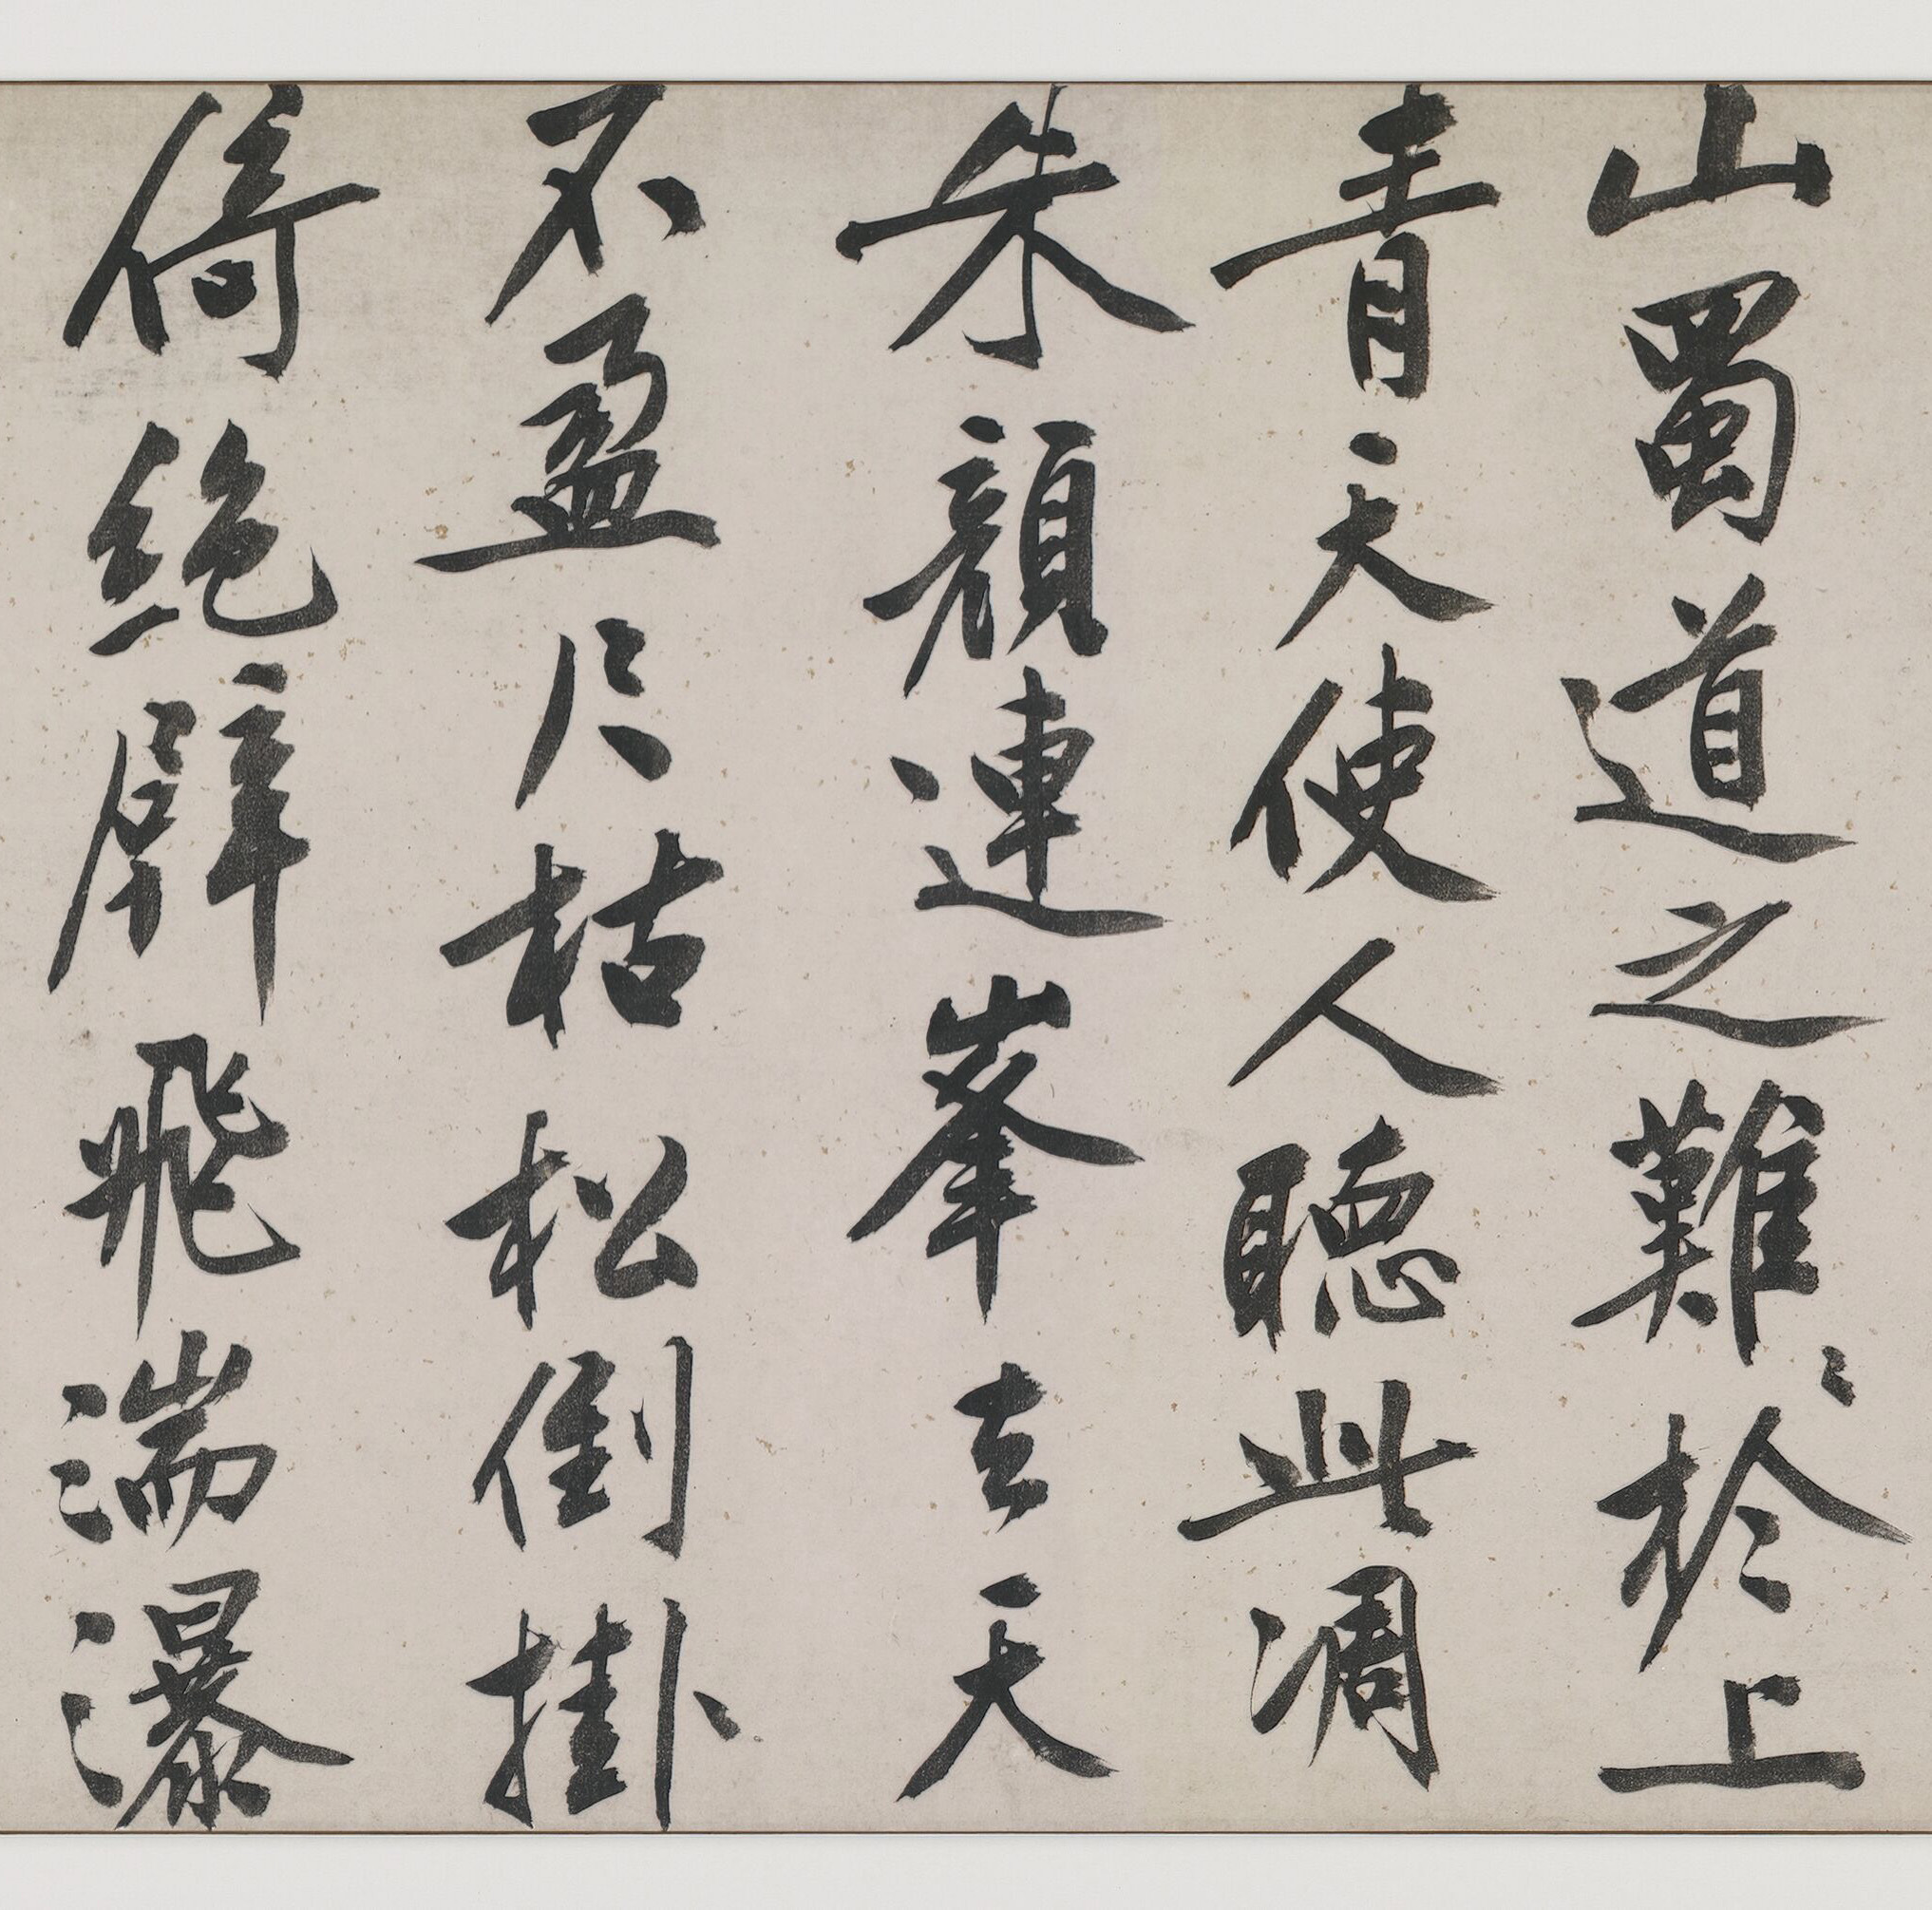 山蜀道之難〻於上
青天使人聽此凋
朱顏連峯去天
不盈尺枯松倒掛
倚絶壁飛湍瀑